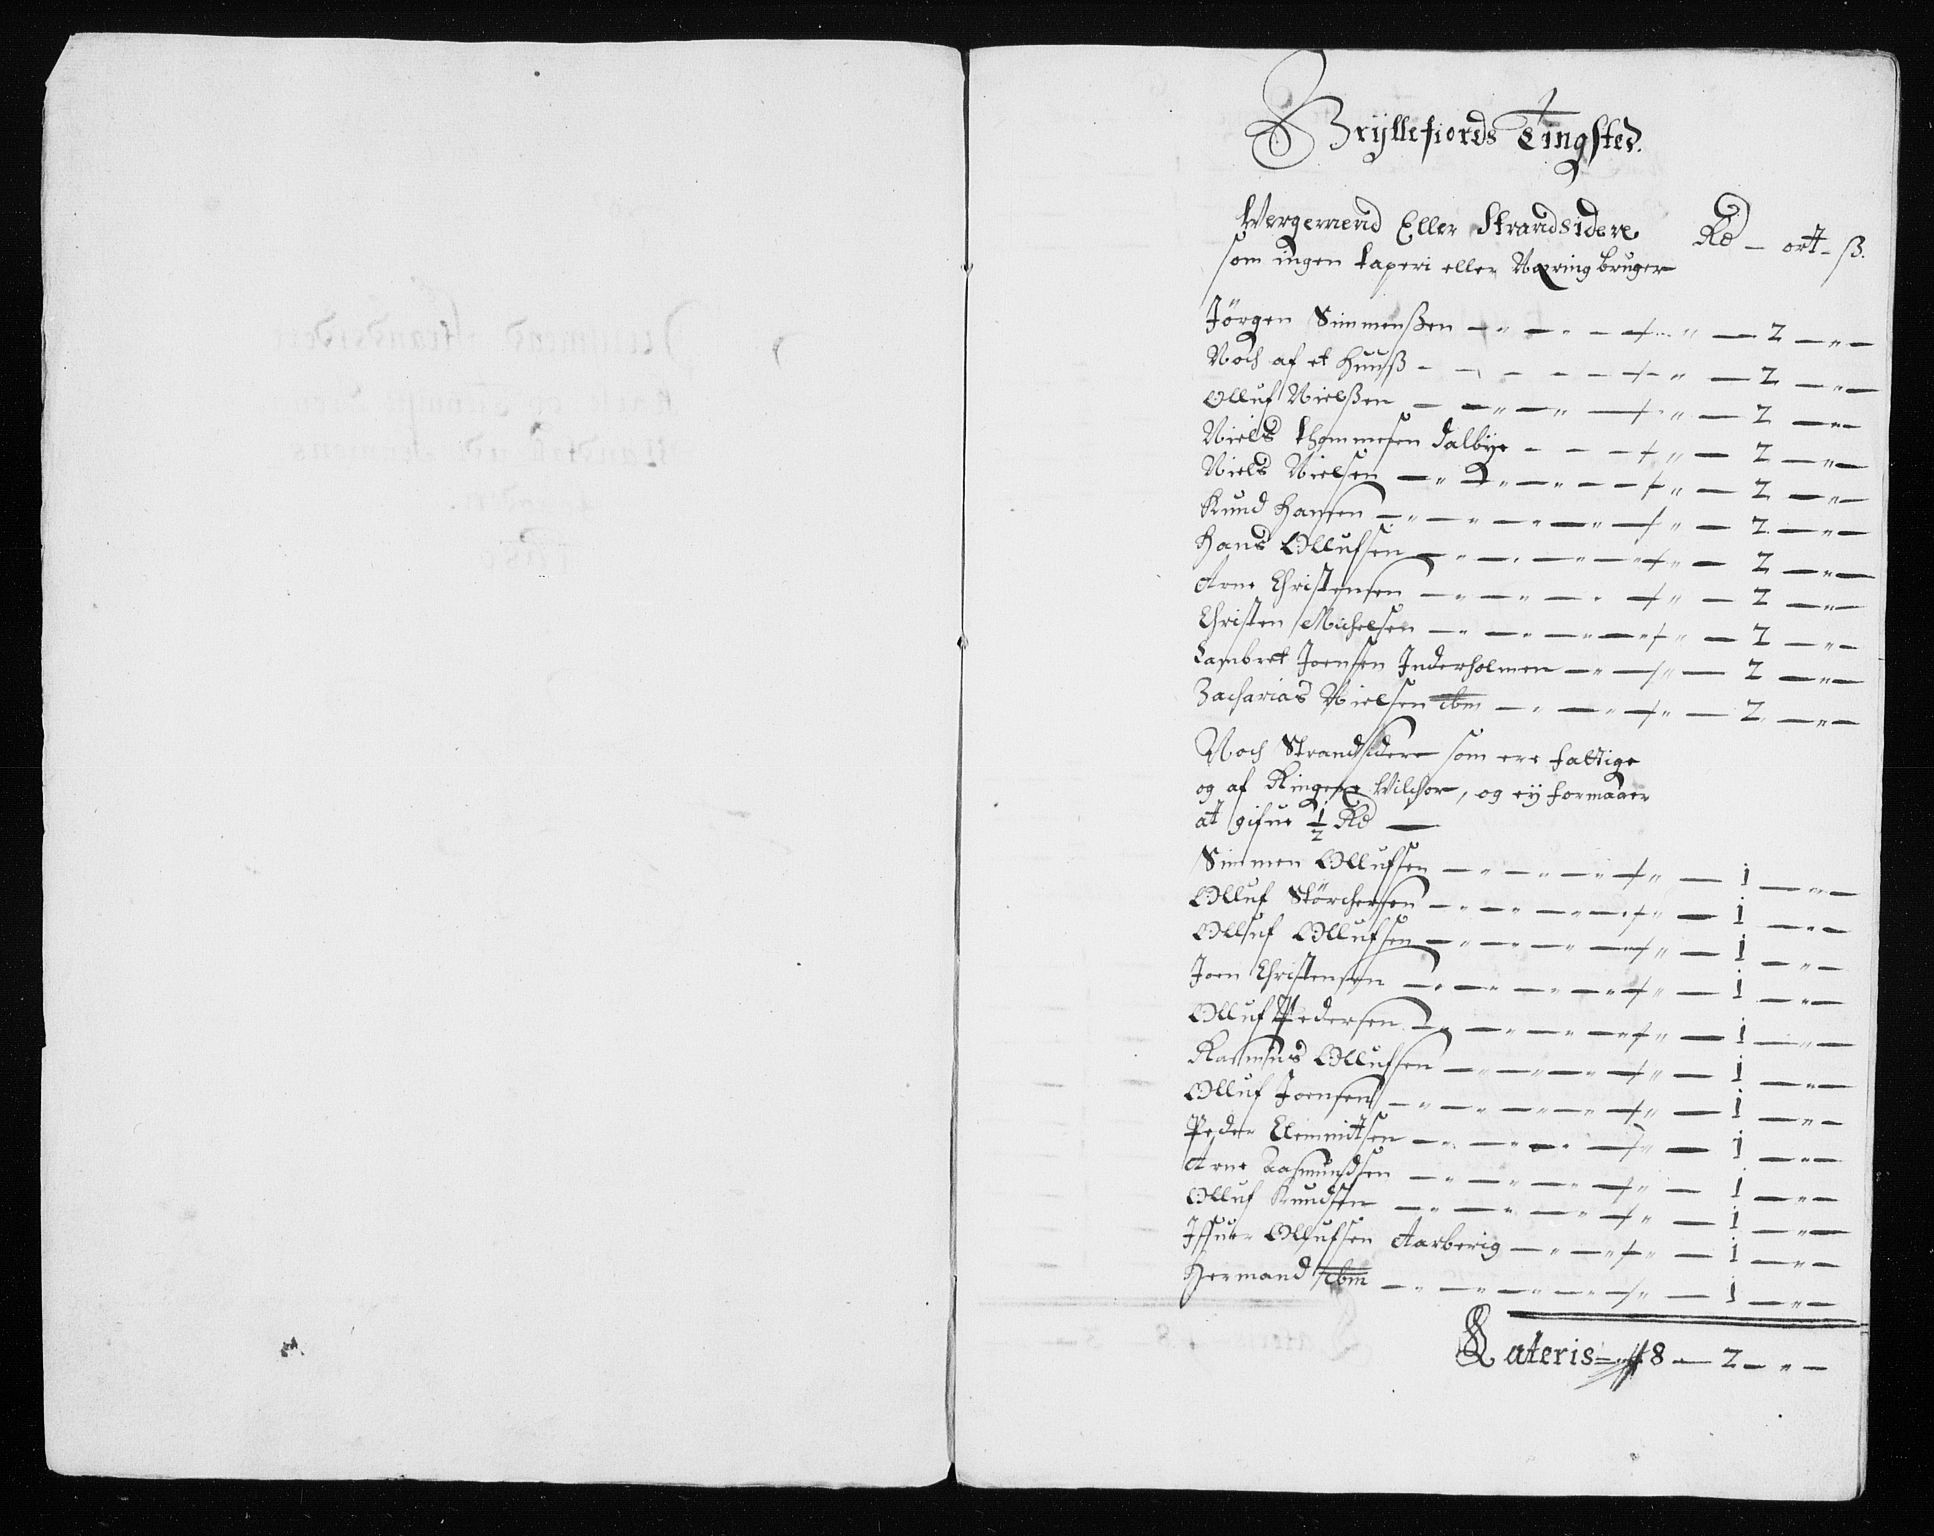 Bryllefiords Tingsted.
Wergemend Eller Strandsidere Rd — ort — ß.
som ingen taperi eller Næring bruger
Jörgen Simmenßen — " — " — 2 — " —
Noch af et Huuß — — — " — 2 — " —
Olluf Nielßen — " — " — 2 — " —
Niels Thommesen Dalbye — — — " — 2 — " —
Niels Nielsen — " — " — 2 — " —
Knud Hansen — " — " — 2 — " —
Hans Ollufsen — " — " — 2 — " —
Arne Christensen — " — " — 2 — " —
Christen Michelsen — " — " — 2 — " —
Lambret Joensen Inderholmen — " — " — 2 — " —
Zacharias Nielsen ibm — " — " — 2 — " —
Noch Strandsidere som ere fattige
og af Ringere Wilchor, og ey formaaer
at gifue 1/2 Rd —
Simmen Ollufsen — " — " — 1 — " —
Olluf Störchersen — " — " — 1 — " —
Olluf Ollufsen — " — " — 1 — " —
Joen Christensen — " — " — 1 — " —
Olluf Pedersen — " — " — 1 — " —
Rasmus Ollufsen — " — " — 1 — " —
Olluf Joensen — " — " — 1 — " —
Peder Clemmitsen — " — " — 1 — " —
Arne Aasmundsen — " — " — 1 — " —
Olluf Knudsen — " — " — 1 — " —
Iffuer Ollufsen Aarberig — " — " — 1 — " —
Hermand ibm — " — " — 1 — " —
Lateris 8 — 2 — " —